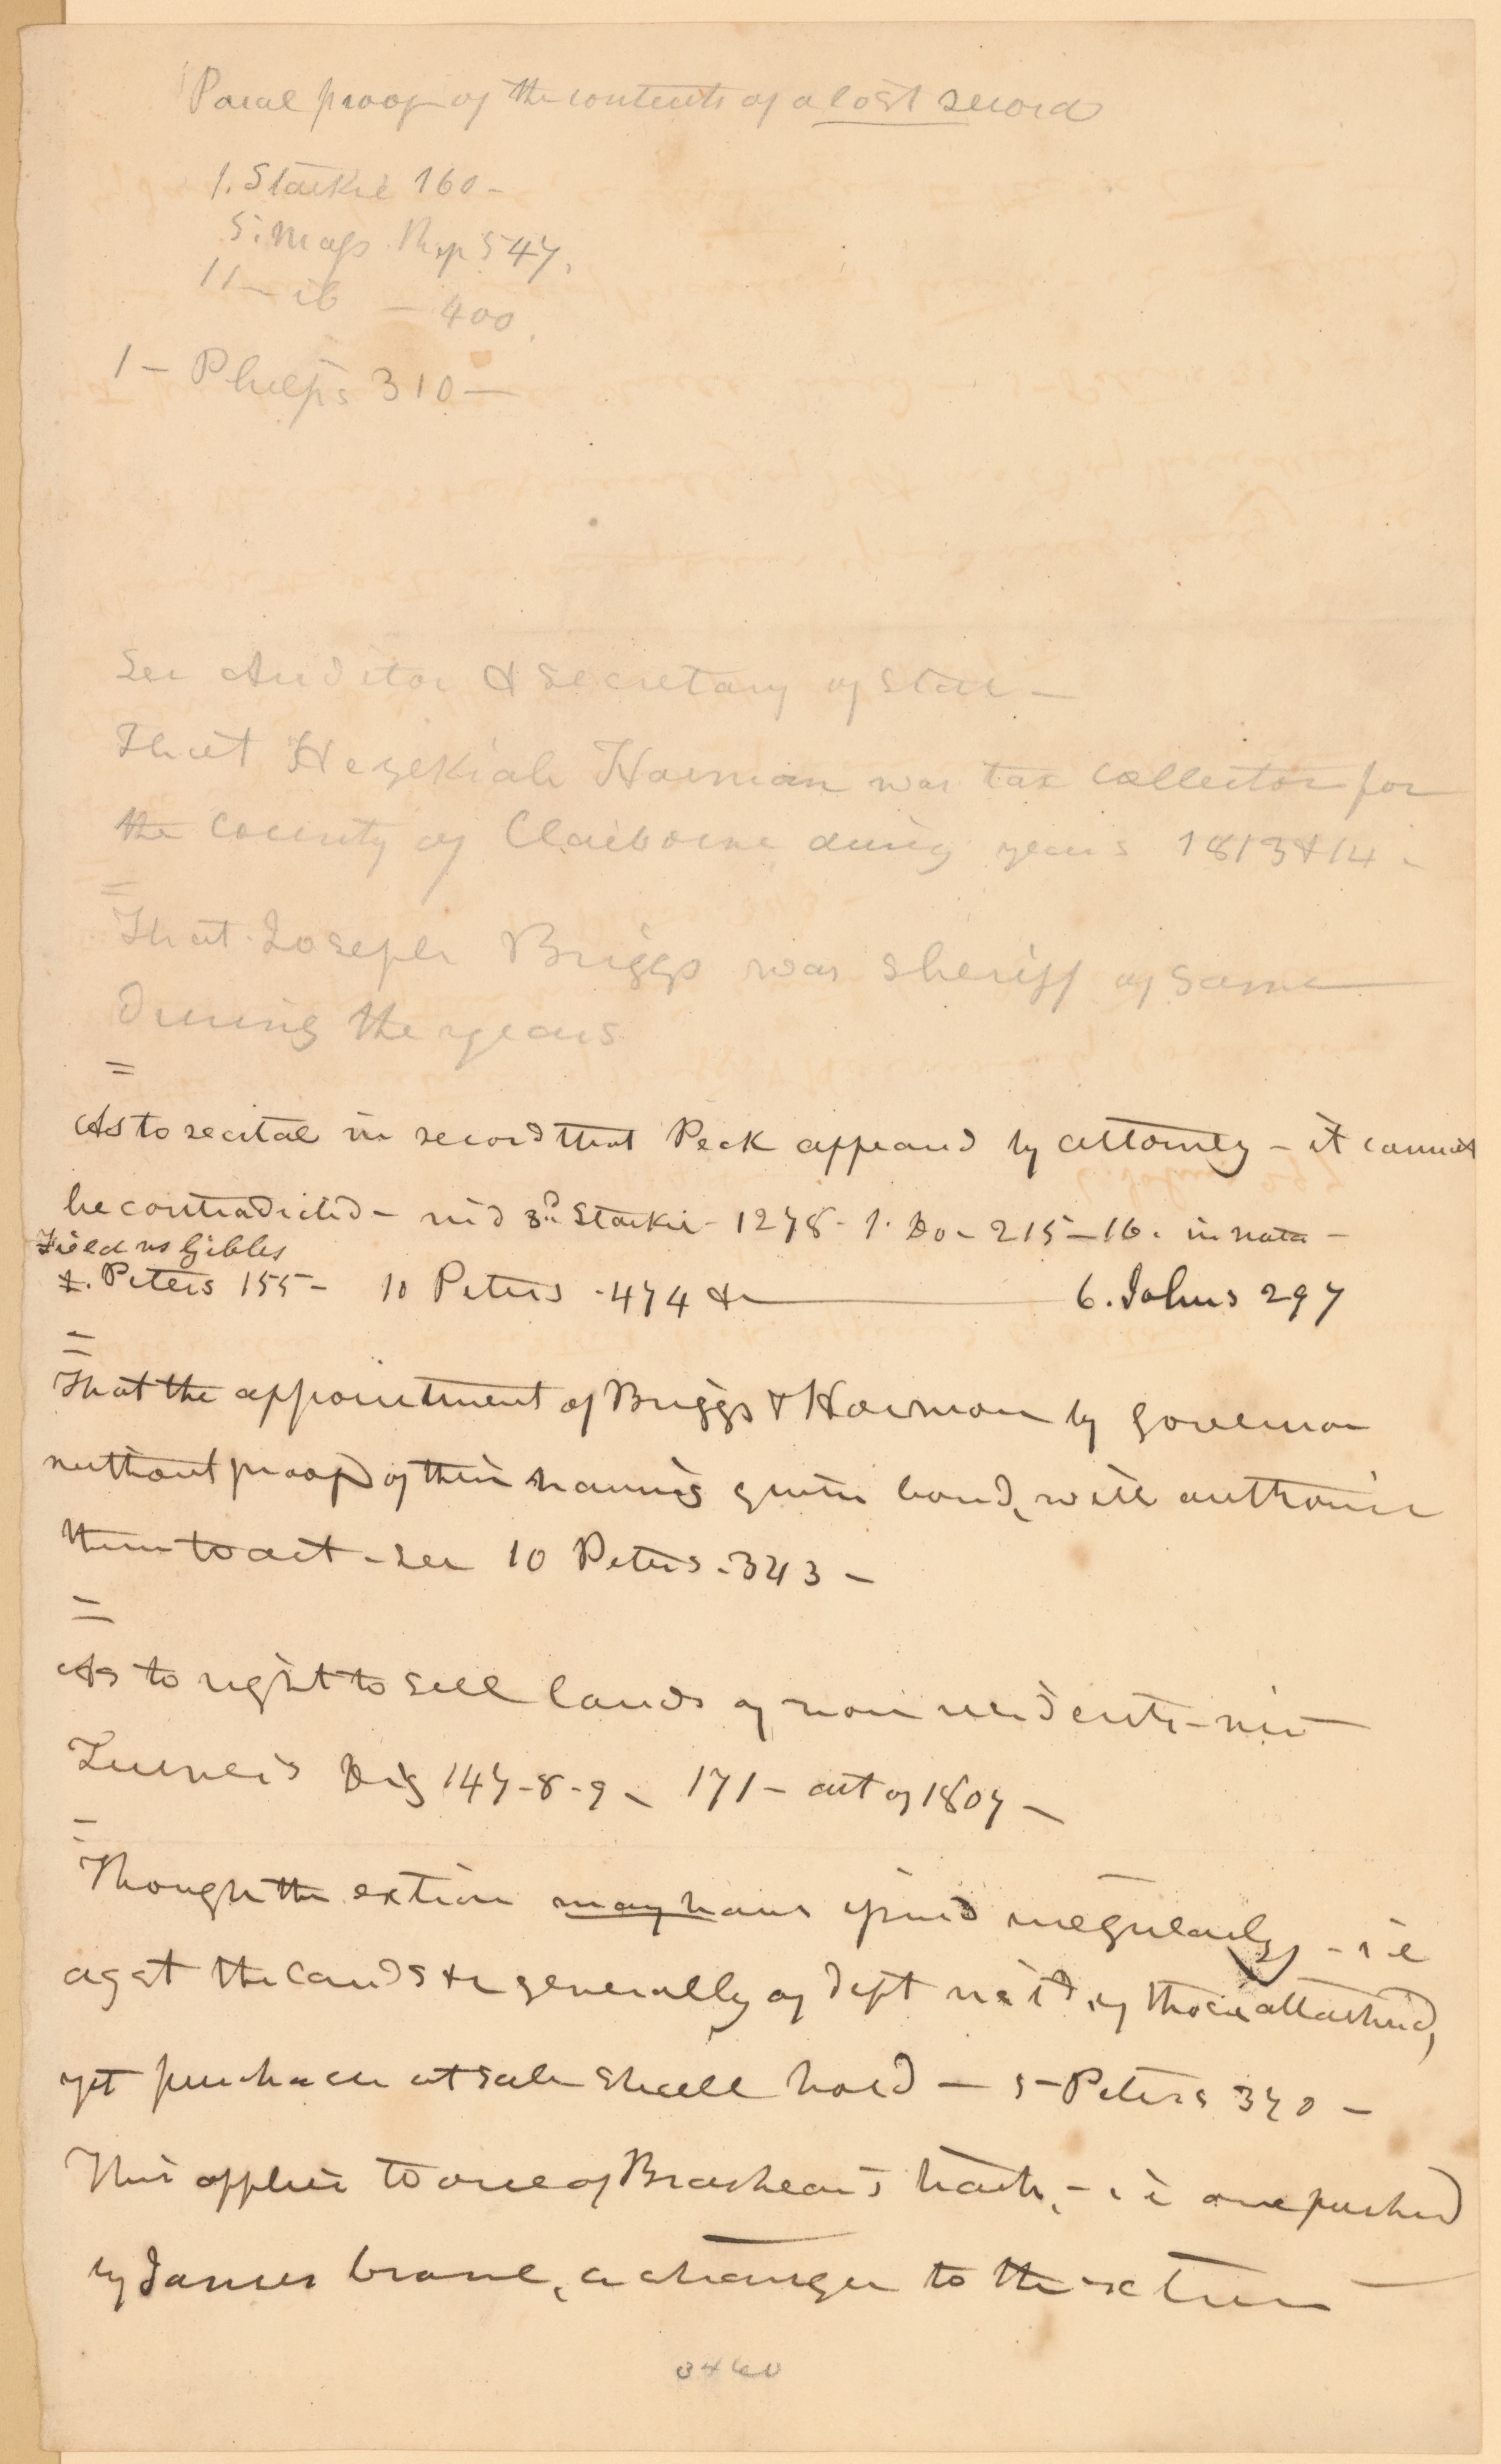 Parol proof of the contents of a lost record
1. Starkie 160 -
5. Mass. Rep 547,
11 - ib - 400.
1 - Phelps 310 -
See Auditor & Secretary of State -
That Hezekiah Harman was tax collector for
the County of Claiborne during years 1813 & 14 -
=
That Joseph Briggs was sheriff of same
During the years
=
As to recital in record that Peck appeard by attorney - it cannot
be contradicted - vid 3rd Starkie - 1278 - 1. Do - 215-16. in nota -
Field vs Gibbs
1. Peters 155 - 10 Peters - 474 &c 6. Johns 297
=
That the appointment of Briggs & Harman by governor
without proof of their having given bond, will authorise
them to act - see 10 Peters - 343 -
=
As to right to sell lands of non residents - vid
Turner's Dig 147-8-9 - 171 - act of 1807 -
=
Though the extion may have issued irregularly - i e
agst the lands &c generally of deft vs of those attached,
yet purchaser at sale shall hold - 5 - Peters 370 -
This applies to one of Brashear's tracts, - i e one purchd
by James , a stranger to the extion
3460